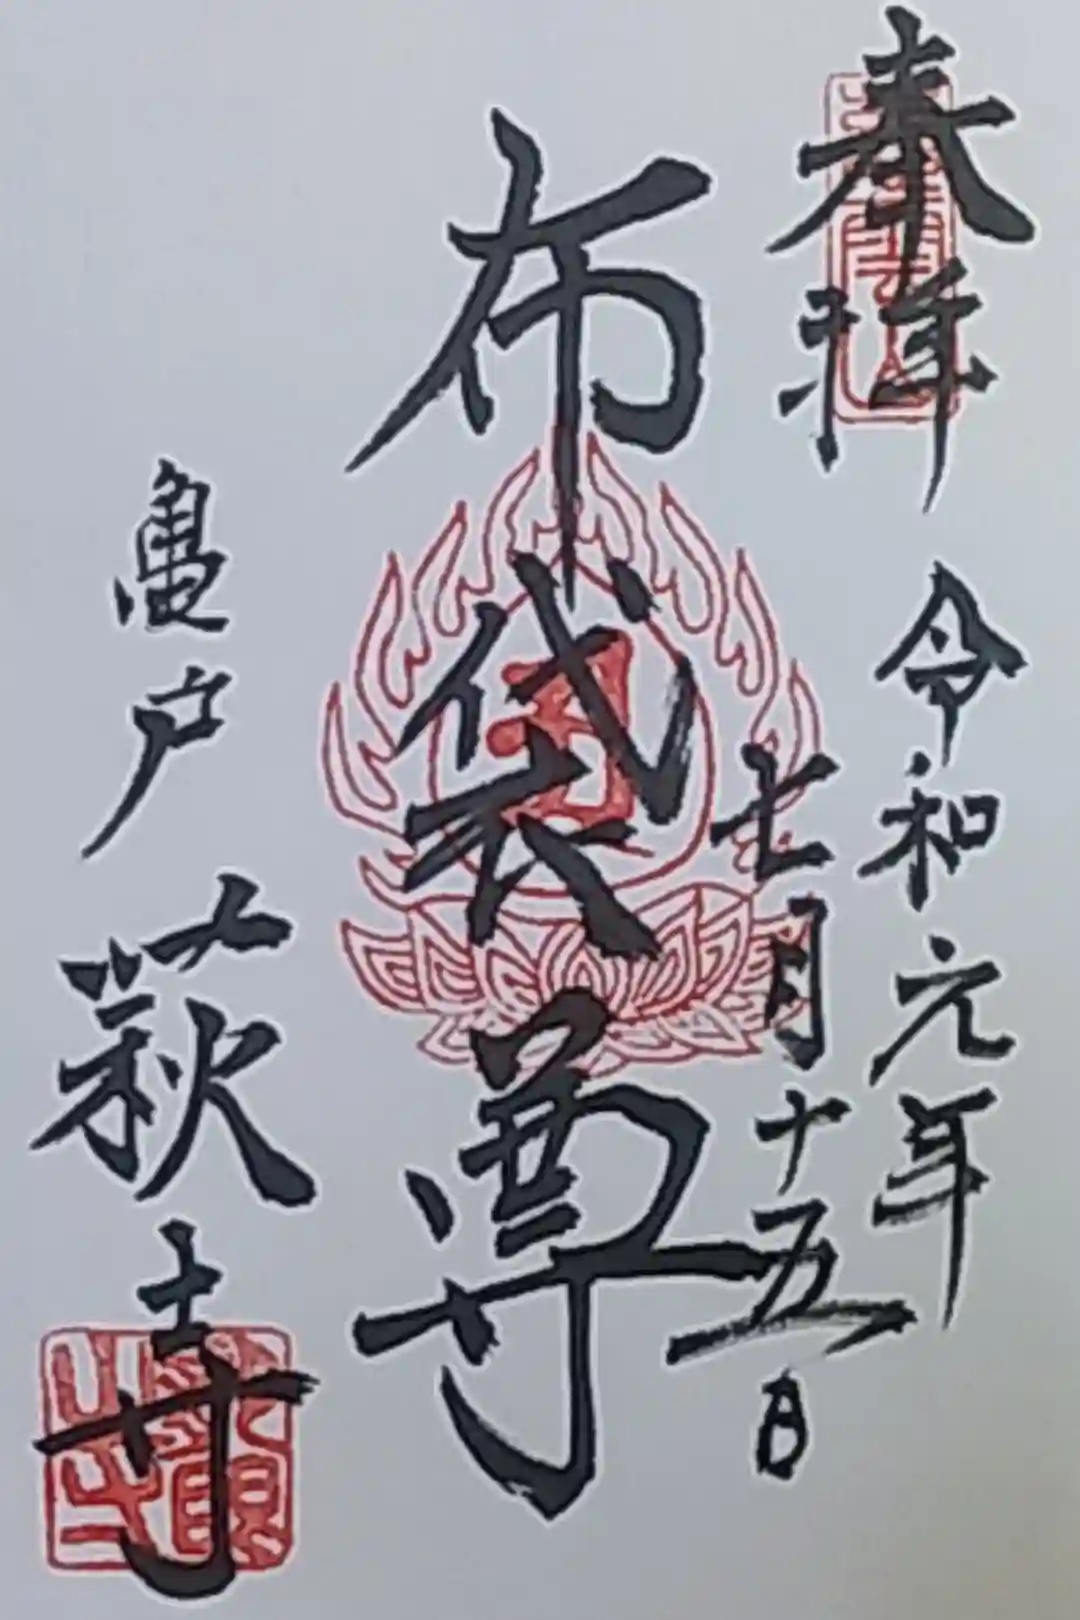 奉拝
令和元年
七月十五日
布袋尊
亀戸 萩寺